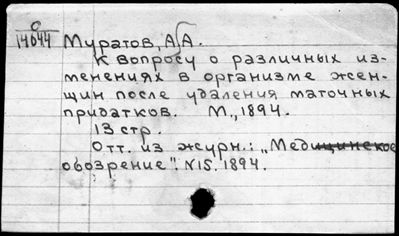 О
14644
Муратов, А А.
К вопросу о различных из-
менениях в организме жен-
щин после удаления маточных
придатков. М., 1894.
13 стр.
Отт. из журн.: „Медицинское
обозрение". N15. 1894.